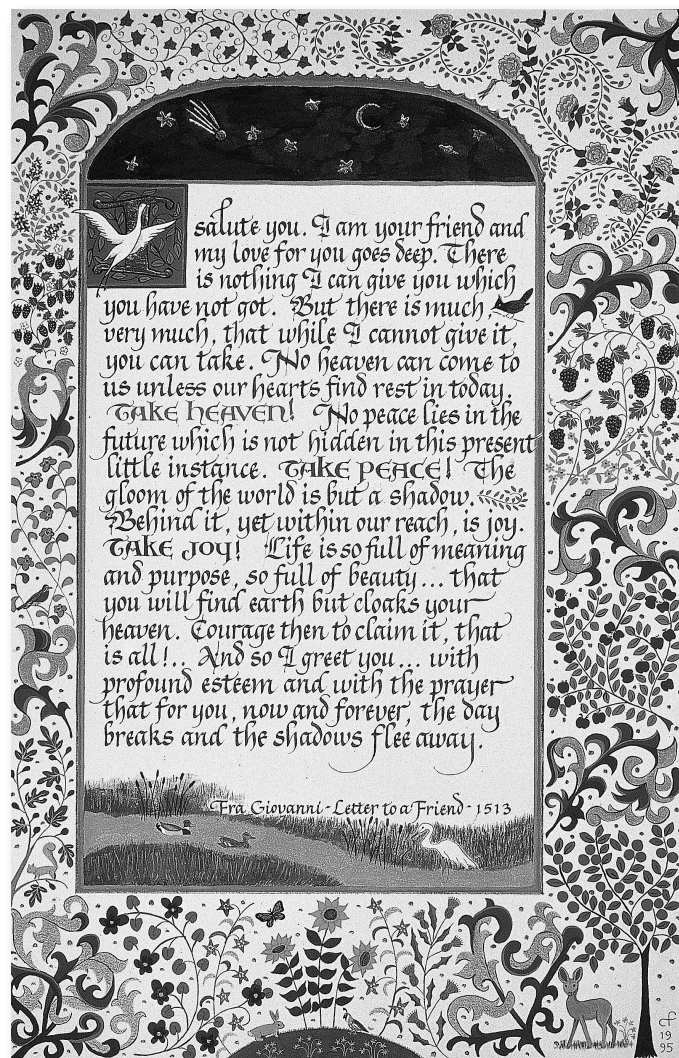 I salute you. I am your friend and
my love for you goes deep. There
is nothing I can give you which
you have not got. But there is much,
very much, that while I cannot give it,
you can take. No heaven can come to
us unless our hearts find rest in today.
TAKE HEAVEN! No peace lies in the
future which is not hidden in this present
little instance. TAKE PEACE! The
gloom of the world is but a shadow.
Behind it, yet within our reach, is joy.
TAKE JOY! Life is so full of meaning
and purpose, so full of beauty... that
you will find earth but cloaks your
heaven. Courage then to claim it, that
is all!.. And so I greet you... with
profound esteem and with the prayer
that for you, now and forever, the day
breaks and the shadows flee away.
Fra Giovanni - Letter to a Friend - 1513
CF
19
95